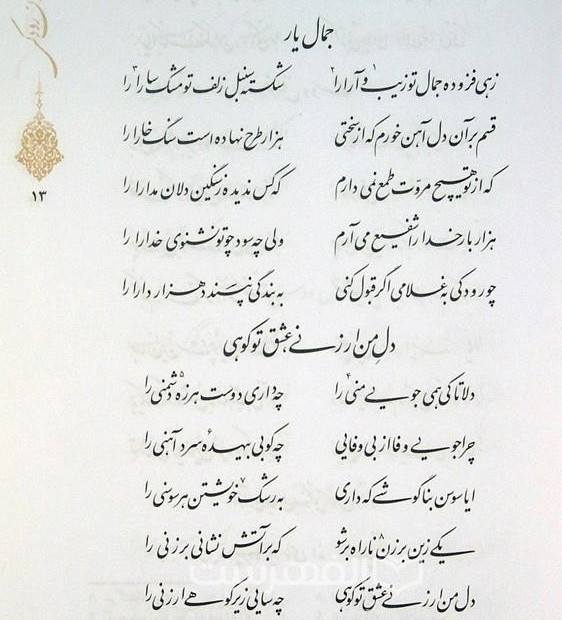 جمال یار
زهی فزوده جمال تو زیب۱ و آرا را۲ شکسته سنبل زلف تو مشک سارا۳ را
قسم بر آن دل آهن خورم که از سختی هزار طرح نهاده است سنگ خارا را
که از تو هیچ مروّت طمع نمی دارم که کس ندیده ز سنگین دلان مدارا را
هزار بار خدا را شفیع می آرم ولی چه سود چو تو نشنوی خدارا را
چو رودکی به غلامی اگر قبول کنی به بندگی نپسندد هزار دارا را
۱۳
دلِ من ارزنی عشق تو کوهی
دلا تا کی همی جویی منی۴ را چه داری دوست هرزه۵ دشمنی را
چرا جویی وفا از بی وفایی چه کوبی بیهده۶ سرد آهنی را
ایا سوسن بناگوشی که داری به رشک۷ خویشتن هر سوسنی را
یکی زین برزن۸ ناراه برشو که بر آتش نشانی برزنی را
دل من ارزنی عشق تو کوهی چه سایی زیر کوهی ارزنی را
الفهرست